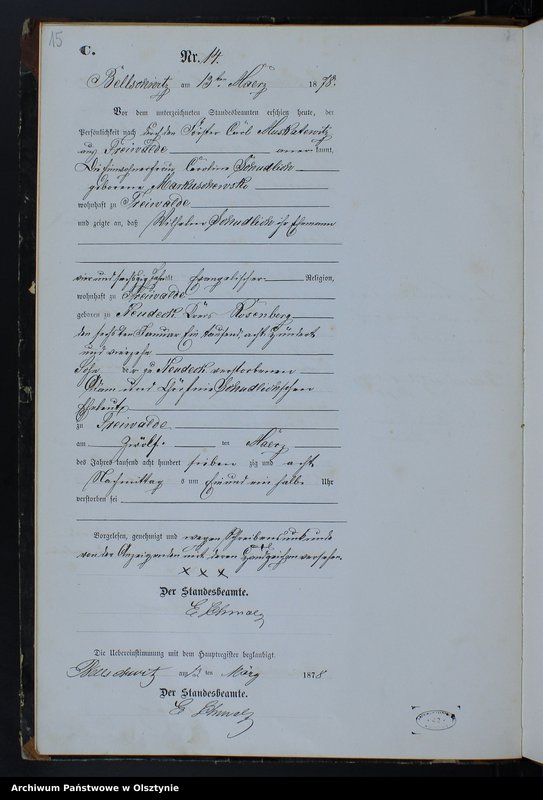 15
C.
Nr. 14.
Bellschwitz am 13ten Maerz 1878.
Vor dem unterzeichneten Standesbeamten erschien heute, der
Persönlichkeit nach durch den Förster Carl
aus Freiwalde anerkannt,
Caroline Schudlich
geborene Markuschewski
wohnhaft zu Freiwalde
und zeigte an, daß Wilhelm Schudlich ihr Ehemann
vier und sechszig Jahr alt Evangelischer Religion,
wohnhaft zu Freiwalde
geboren zu Neudeck Kreis Rosenberg
den sechsten Januar Ein tausend acht Hundert
und vierzehn
Sohn der zu Neudeck verstorbenen
Adam und Schudlichschen
Eheleute
zu Freiwalde
am Zwölf ten Maerz
des Jahres tausend acht hundert sieben zig und acht
Nachmittag s um Ein und ein halbe Uhr
verstorben sei
Vorgelesen, genehmigt und wegen Schreibensunkunde
von der Anzeigenden mit deren Handzeichen versehen.
x x x
Der Standesbeamte.
Die Uebereinstimmung mit dem Hauptregister beglaubigt.
Bellschwitz am 13 ten März 1878
Der Standesbeamte.
Archiwum Państwowe w Olsztynie